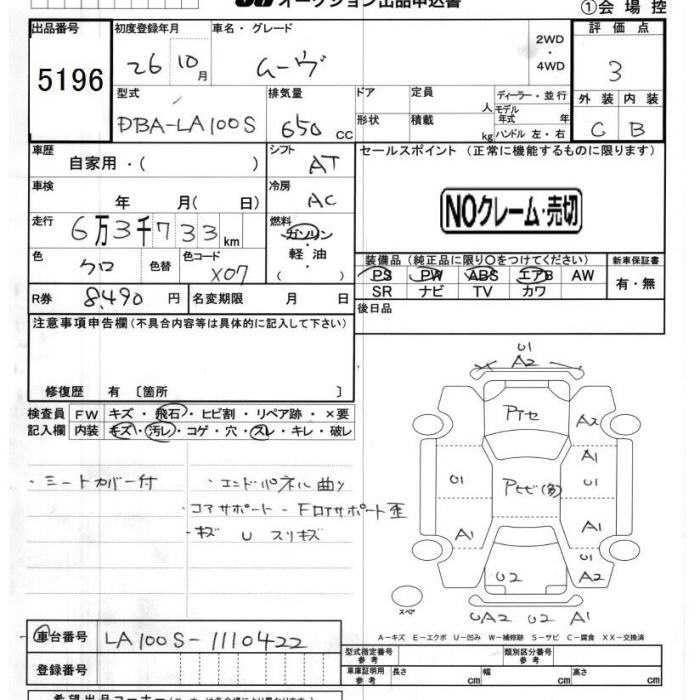 オークション出品申込書
①会場控
出品番号 初度登録年月 車名・グレード 評価点
5196 26 10月 ムーヴ 2WD・4WD 3
型式 排気量 ドア 定員 人 ディーラー・並行 外装 内装
DBA-LA100S 650 CC 形状 積載 kg モデル年式 年 ハンドル 左・右 C B
車歴 自家用・( ) シフト AT セールスポイント (正常に機能するものに限ります)
車検 年 月( 日) 冷房 AC
NOクレーム・売切
走行 6万3千733km 燃料 ガソリン
軽油
( )
色 クロ 色替 色コード X07
装備品 (純正品に限り○をつけてください) 新車保証書
PS PW ABS エアB AW 有・無
SR ナビ TV カワ
R券 8,490円 名変期限 月 日 後日品
注意事項申告欄 (不具合内容等は具体的に記入して下さい)
修復歴 有 〔箇所 〕
検査員 FW キズ・飛石・ヒビ割・リペア跡・×要
記入欄 内装 キズ・汚レ・コゲ・穴・スレ・キレ・破レ
・シートカバー付 ・エンドパネル曲り
・コアサポート-Fロアサポート歪
・キズ U スリキズ
U1
A2
Pトセ
A2
A1
U1 Pヒビ(多) U1
A1 A1
U2 A2
スペア
UA2 U2 A1
A-キズ E-エクボ U-凹み W-補修跡 S-サビ C-腐食 XX-交換済
車台番号 LA100S-1110422
型式指定番号 参考 類別区分番号 参考
登録番号 車庫証明用 参考 長さ cm 幅 cm 高さ cm
希望出品コーナー